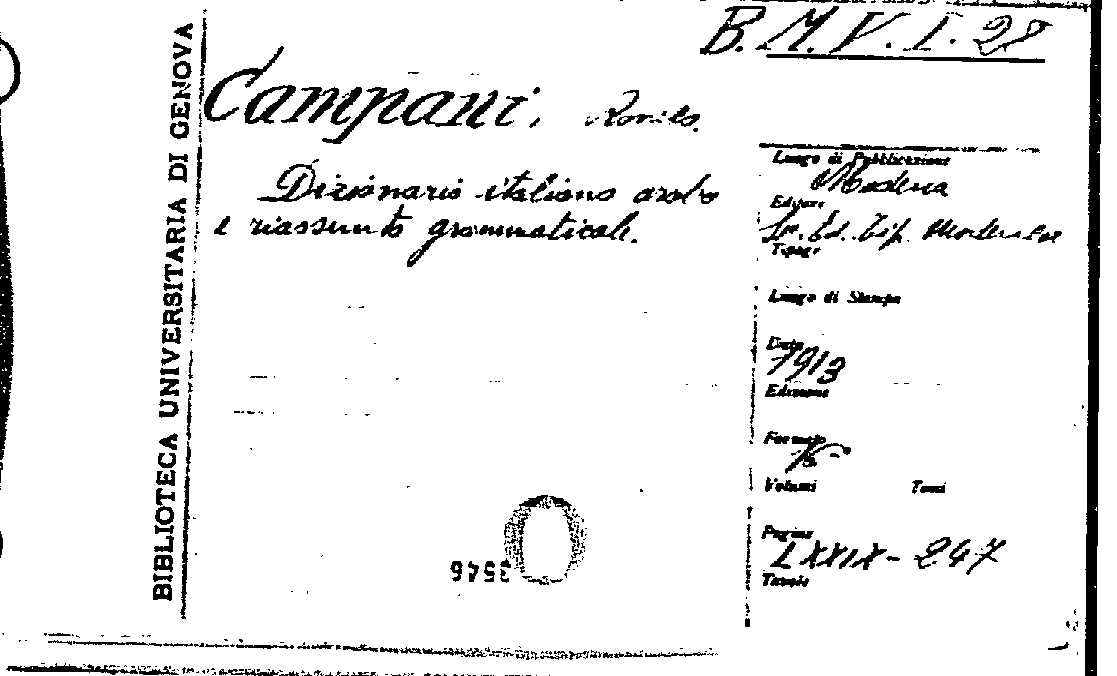 BIBLIOTECA UNIVERSITARIA DI GENOVA
B. M. V. I. 28
Campani, Romeo.
Dizionario italiano arabo
e riassunto grammaticale.
Luogo di Pubblicazione
Modena
Editore
Tip.
Tipogr
Luogo di Stampa
Data
1913
Edizione
Formato
Volumi Tomi
Pagine
LXXIX - 247
Tavole
3546